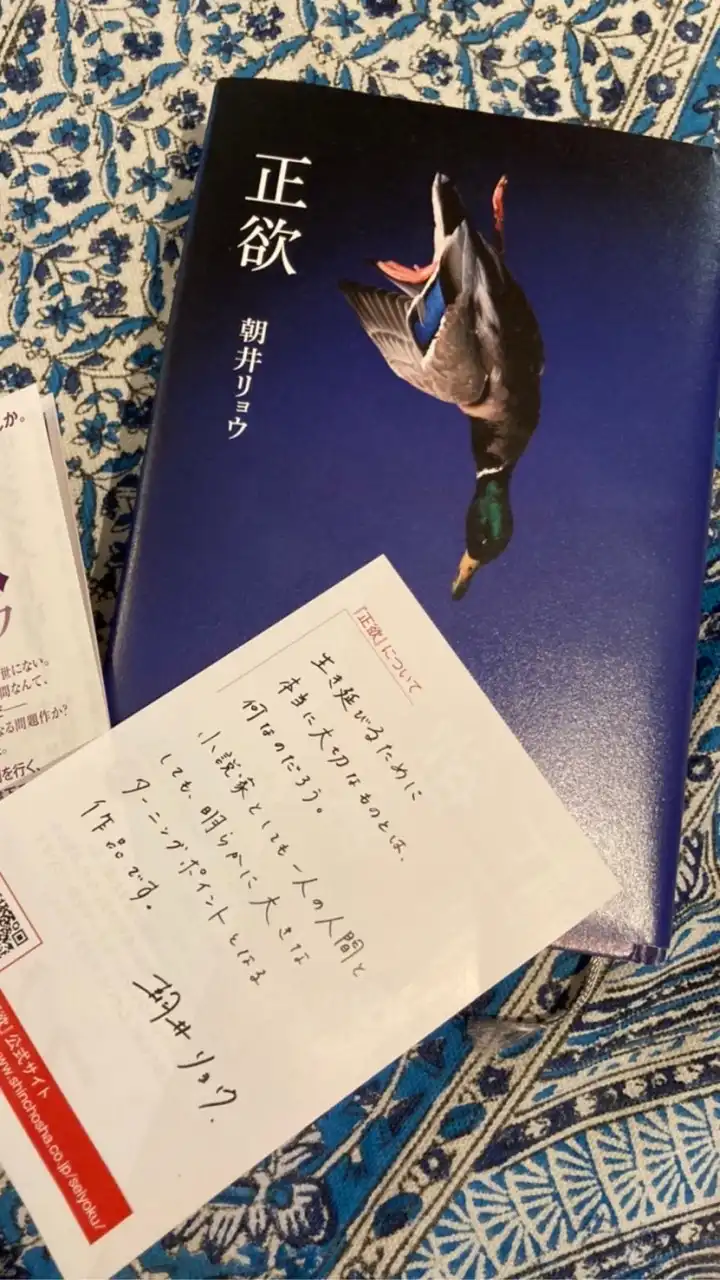 正欲
朝井リョウ
『正欲』について
生き延びるために
本当に大切なものとは、
何なのだろう。
小説家としても一人の人間と
しても、明らかに大きな
ターニングポイントとなる
作品です。
朝井リョウ
か。
世にない。
間なんて、
なる問題作か?
を行く、
欲』公式サイト
www.shinchosha.co.jp/seiyoku/